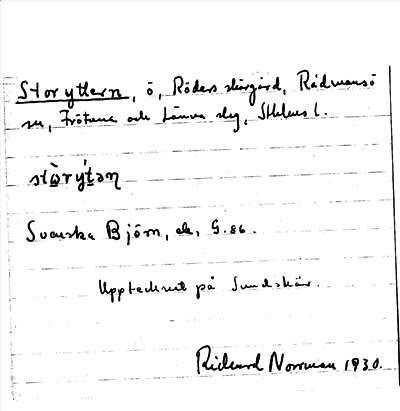 Storyttern, ö, Röders skärgård, Rådmansö
sn, Frötuna och Länna slg, Sthlms l.
stòrýtən
Svenska Björn, ek, G.86.
Upptecknat på Sundskär.
Rickard Norrman 1930.